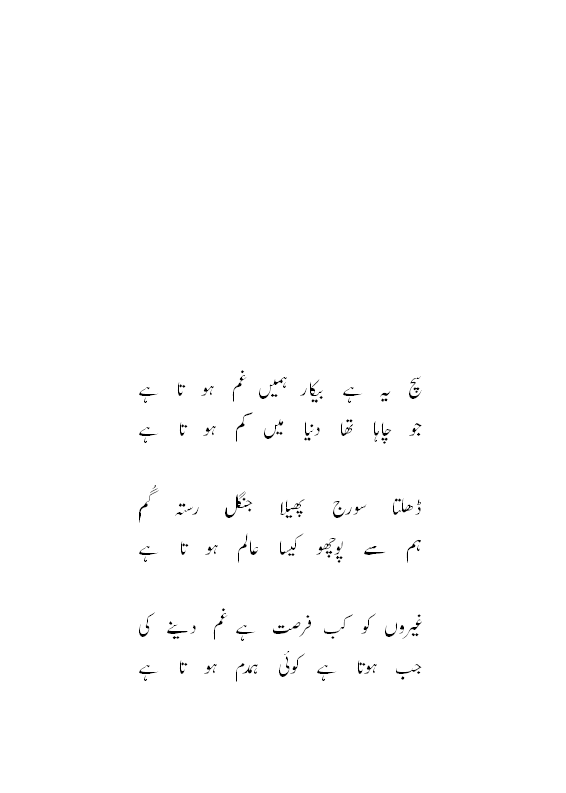 سچ یہ ہے بیکار ہمیں غم ہو تا ہے
جو چاہا تھا دنیا میں کم ہو تا ہے
ڈھلتا سورج پھیلا جنگل رستہ گُم
ہم سے پوچھو کیسا عالم ہو تا ہے
غیروں کو کب فرصت ہے غم دینے کی
جب ہوتا ہے کوئی ہمدم ہو تا ہے